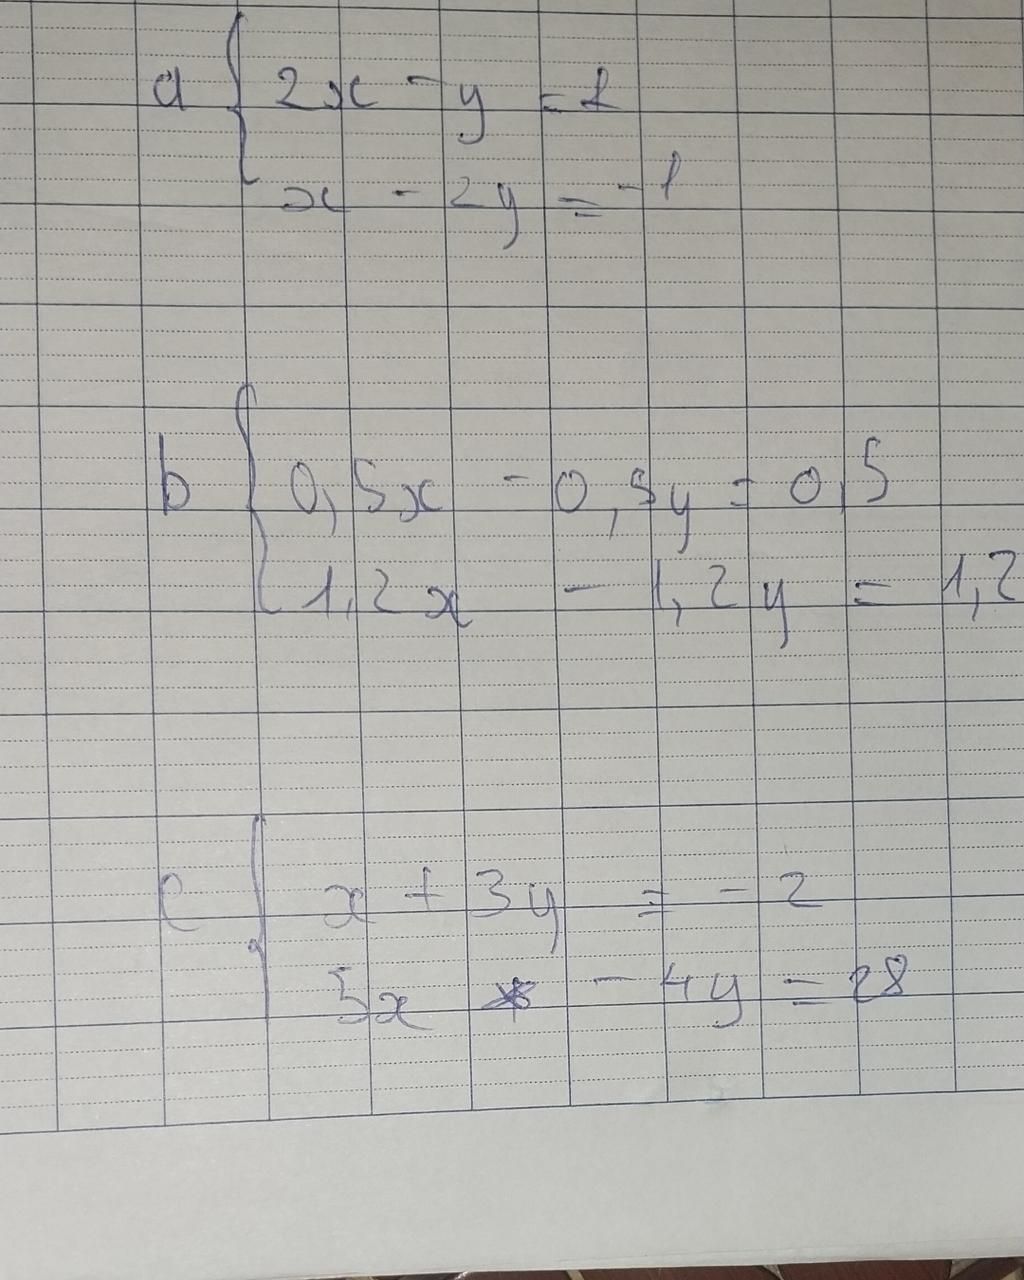 a { 2x - y = 1
x - 2y = -1
b { 0,5x - 0,5y = 0,5
1,2x - 1,2y = 1,2
c { x + 3y = -2
5x - 4y = 28